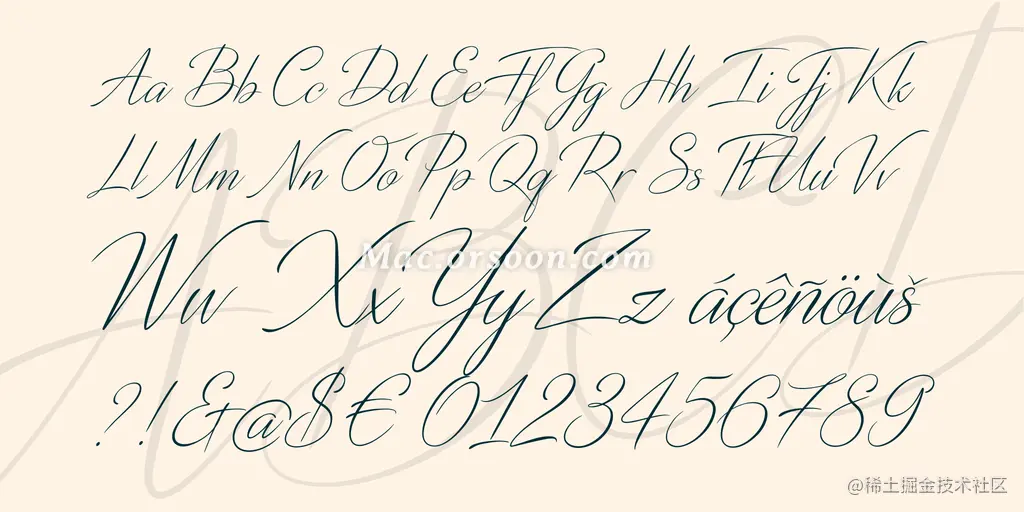 Aa Bb Cc Dd Ee Ff Gg Hh Ii Jj Kk
Ll Mm Nn Oo Pp Qq Rr Ss Tt Uu Vv
Ww Xx Yy Zz áçêñöùš
Mac.orsoon.com
?!&@$€ 0123456789
@稀土掘金技术社区